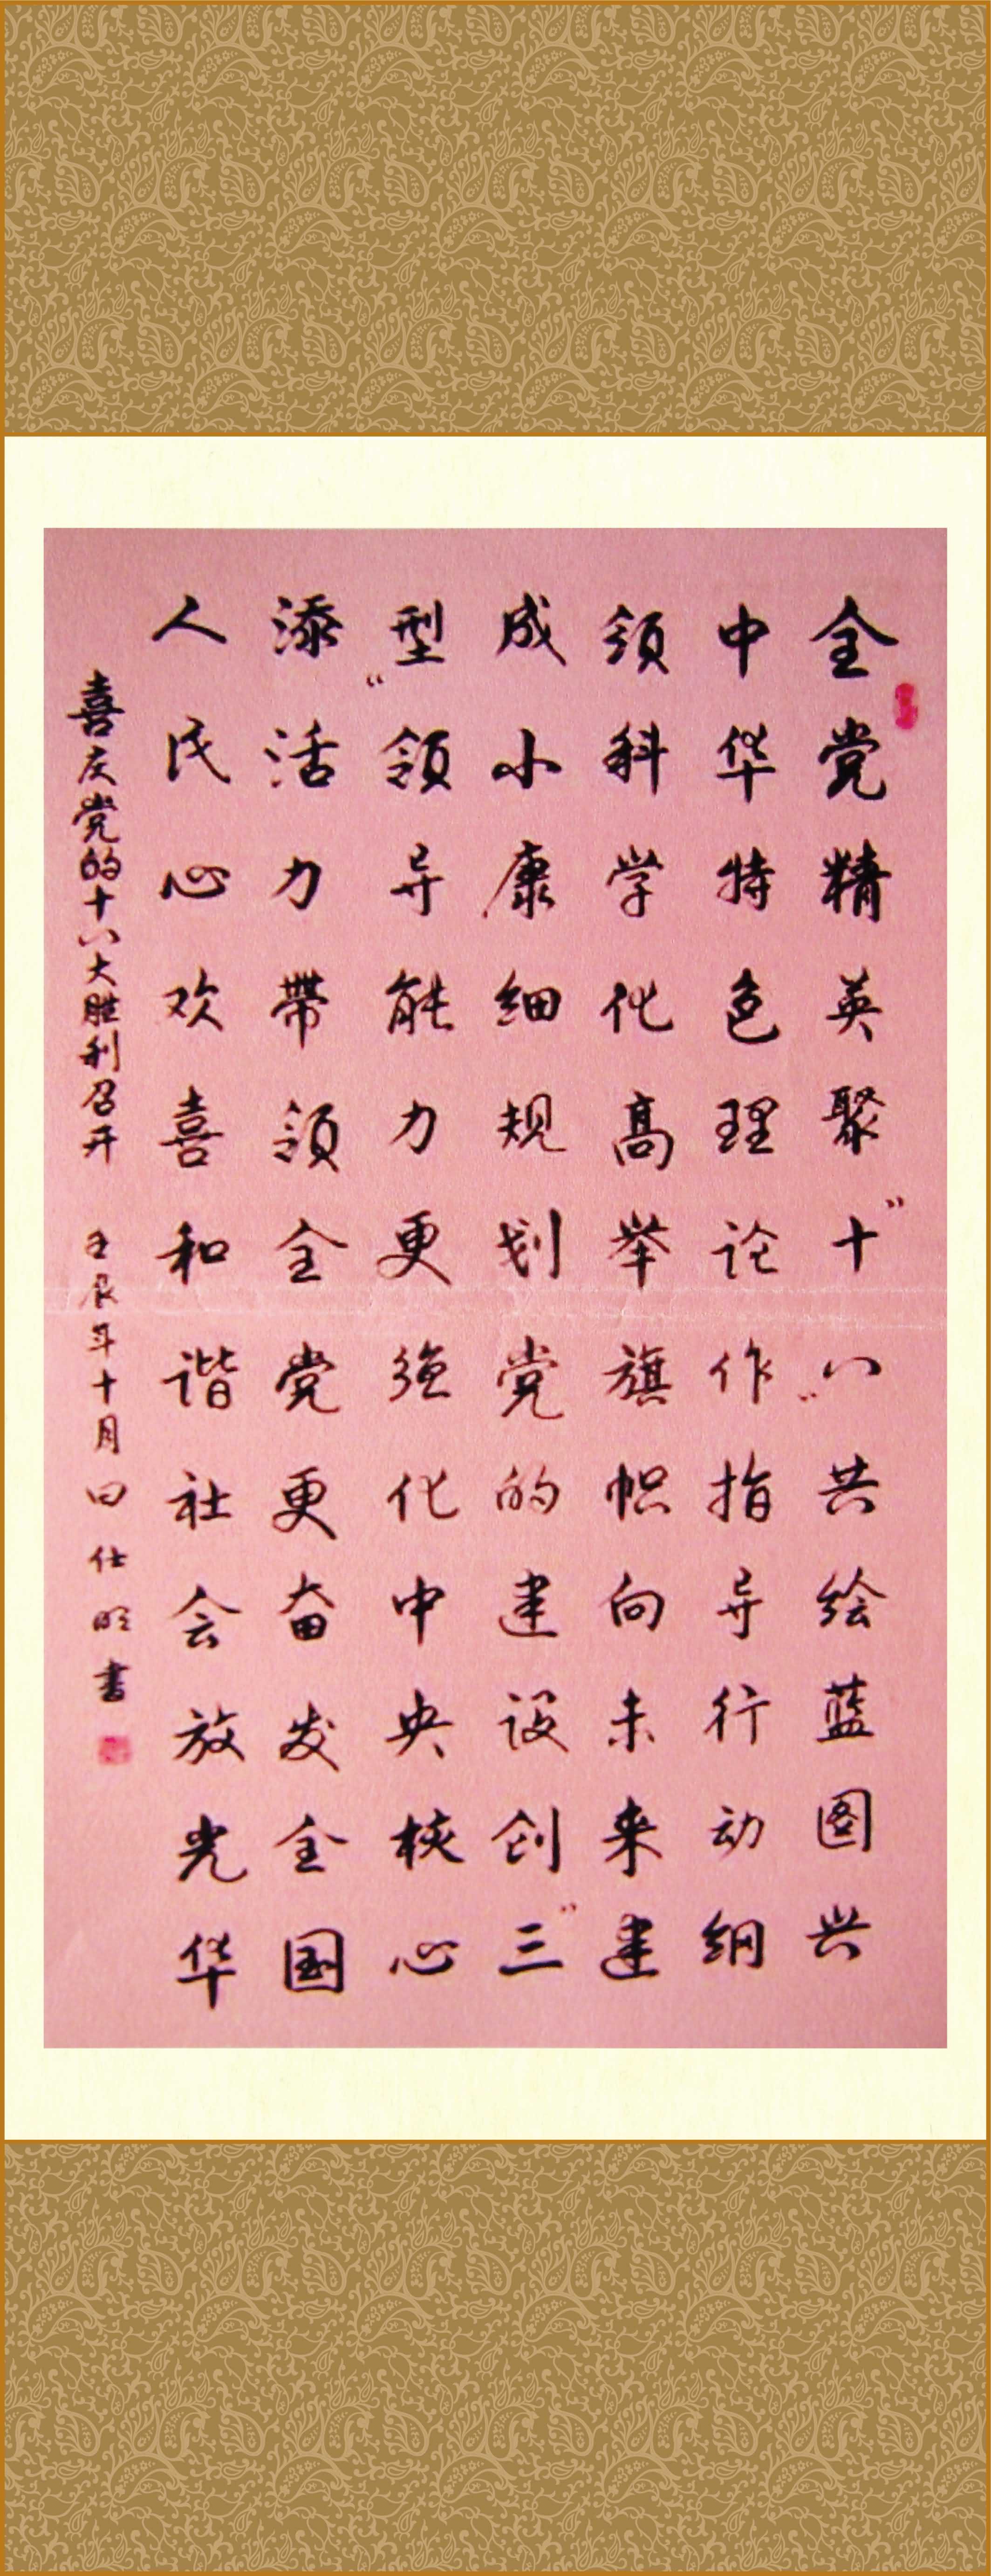 全党精英聚“十八”共绘蓝图兴
中华特色理论作指导行动纲
领科学化高举旗帜向未来建
成小康细规划党的建设创“三
型”领导能力更强化中央核心
添活力带领全党更奋发全国
人民心欢喜和谐社会放光华
喜庆党的十八大胜利召开 壬辰年十月 田仕明书